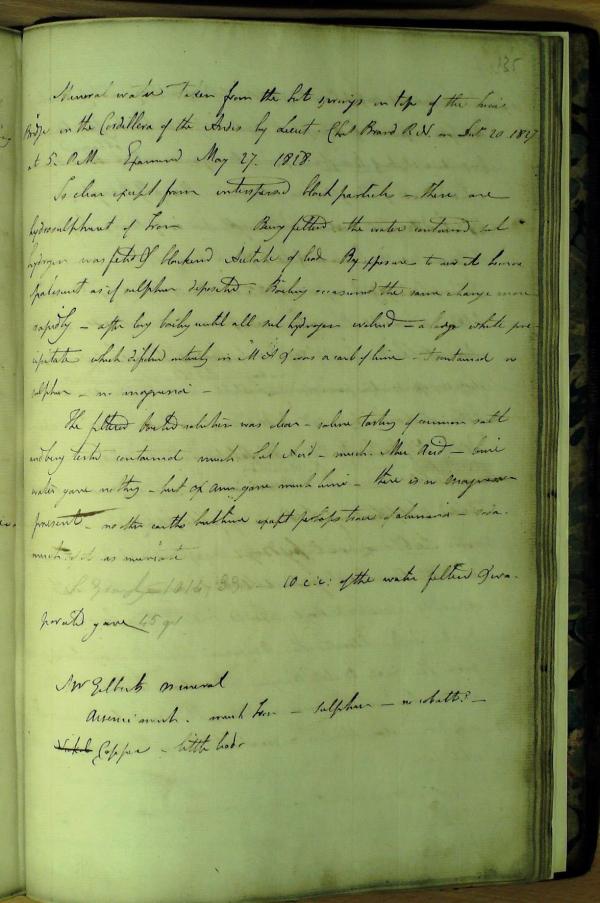 135
Mineral water taken from the hot springs on top of the Incas
Bridge in the Cordillera of the Andes by Lieut. Chas Brand R.N. on 20 1827
at 5. P.M. Examined May 27. 1828.
Is clear except from interspersed black particles - there are
hydrosulphuret of Iron Being filtered the water contained sul
hydrogen was fetid & blackened Acetate of lead By exposure to air it became
opalescent as if sulphur deposited. Boiling occasioned the same change more
rapidly - after long boiling until all sul hydrogen evolved - a large white pre-
cipitate which dissolved entirely in M A & was a carb of lime - it contained no
sulphur - no magnesia -
The filtered boiled solution was clear - saline tasting of common salt
and being tested contained much Sul Acid - much Mur Acid - lime
water gave nothing - but ox amm gave much lime - there is no magnesia
present - no other earths but lime except perhaps trace of alumina - soda
much as muriate
S. Gravity
10 c.i: of the water filtered & eva-
porated gave 45 gr
Mr Gilberts mineral
Arsenic much. much Iron - sulphur - no cobalt? -
Nickel Copper - little lead